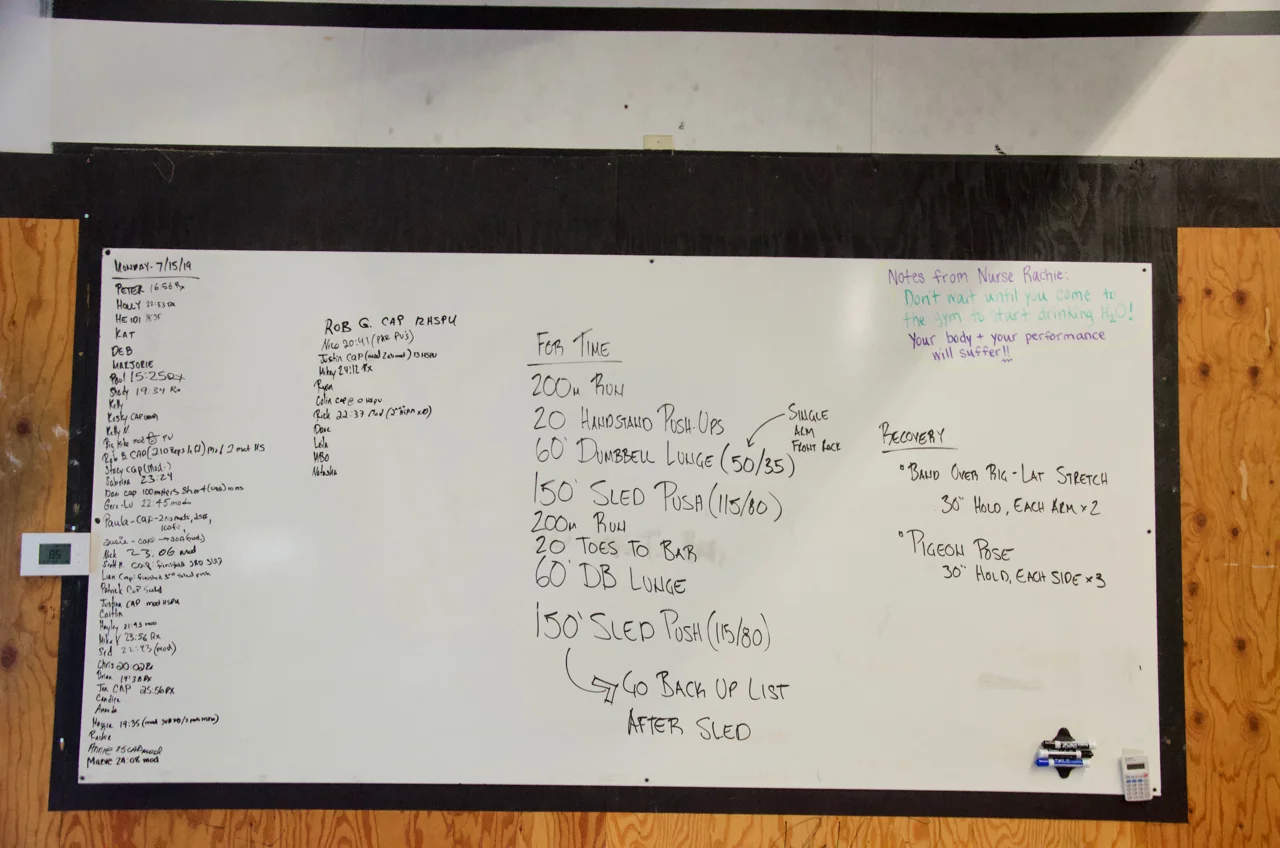 MONDAY - 7/15/19
PETER 16:56 Rx
HOLLY 22:53 Rx
KAT
DEB
MARJORIE
Paul 15:25 Rx
Shady 19:34 Rx
Kelly
Kosky CAP
Kelly
Big Mike mod PU
Rob B CAP (210 Reps) mod / 2 mat HS
Stacy cap (mod.)
Sabrina 23:24
Don cap 100 meters short
Geri-Lu 22:45 mod
Paula - CAP -
Susie - cap
Nick 23:06 mod
Scott H. cap: finished 3RD SLED
Lian Cap: finished 3rd sled push
Patrick CAP
Justina CAP mod HSPU
Caitlin
Hayley 21:43 mod
Mike V 23:56 Rx
Syd 22:43 (mod)
Chris 20:02 Rx
Brian 19:38 Rx
CAP 25:56 Rx
Candice
Amanda
Maggie 19:35
Rachie
Annie 25 CAP mod
Marne 24:08 mod
ROB G. CAP 12 HSPU
Nico 20:41 (PIKE PU's)
Justin CAP 13 HSPU
Mikey 24:12 Rx
Ryan
Colin cap @ 0 HSPU
Rick 22:37 Mod
Dave
Lola
HBO
Natasha
FOR TIME
200m RUN
20 HANDSTAND PUSH-UPS
60' DUMBBELL LUNGE (50/35)
SINGLE
ARM
FRONT RACK
150' SLED PUSH (115/80)
200m RUN
20 TOES TO BAR
60' DB LUNGE
150' SLED PUSH (115/80)
GO BACK UP LIST
AFTER SLED
Notes from Nurse Rachie:
Don't wait until you come to
the gym to start drinking H2O!
Your body + your performance
will suffer!!
RECOVERY
• BAND OVER RIG - LAT STRETCH
30" HOLD, EACH ARM x 2
• PIGEON POSE
30" HOLD, EACH SIDE x 3